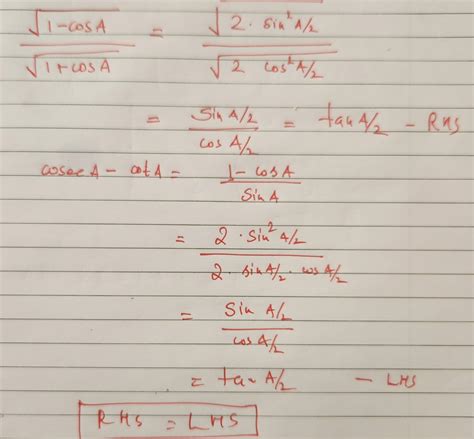 √1-cosA / √1+cosA = √2 · sin² A/2 / √2 cos² A/2
= Sin A/2 / cos A/2 = tan A/2 - RHS
cosec A - cot A = 1 - cosA / Sin A
= 2 · Sin² A/2 / 2 · sin A/2 · cos A/2
= Sin A/2 / cos A/2
= tan A/2 - LHS
RHS = LHS